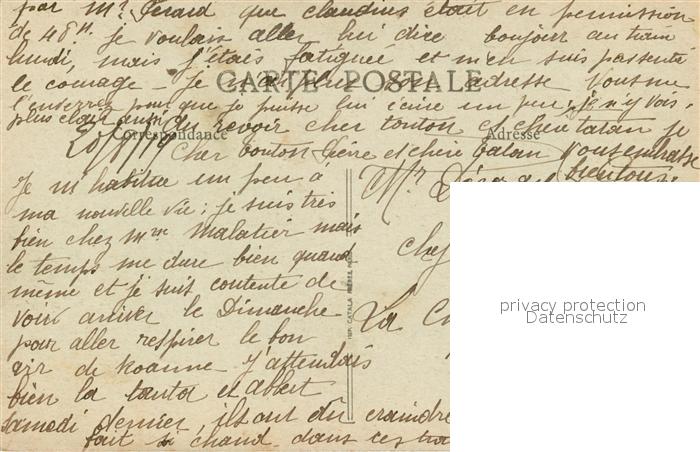 par Mr. Gérard que claudius était en permission
de 48H. je voulais aller lui dire bonjour au train
lundi, mais j'étais fatiguée et m'en suis pas sentie
le courage - Je adresse vous me
l'enverrez pour que je puisse lui écrire un peu, je n'y vois
plus clair au revoir cher tonton et chère tatan je
CARTE POSTALE
Correspondance
Adresse
vous embrasse
bien tous
Cher tonton Pierre et chère tatan
Je m'habitue un peu à
ma nouvelle vie ; je suis très
bien chez Mme Malatier mais
le temps me dure bien quand
même et je suis contente de
voir arriver le Dimanche
pour aller respirer le bon
air de Roanne - J'attendais
bien la tantot et albert
samedi dernier, ils ont dû craindre
fait si chaud dans ces
Mr
chef
La
IMP. CATALA FRÈRES
privacy protection
Datenschutz